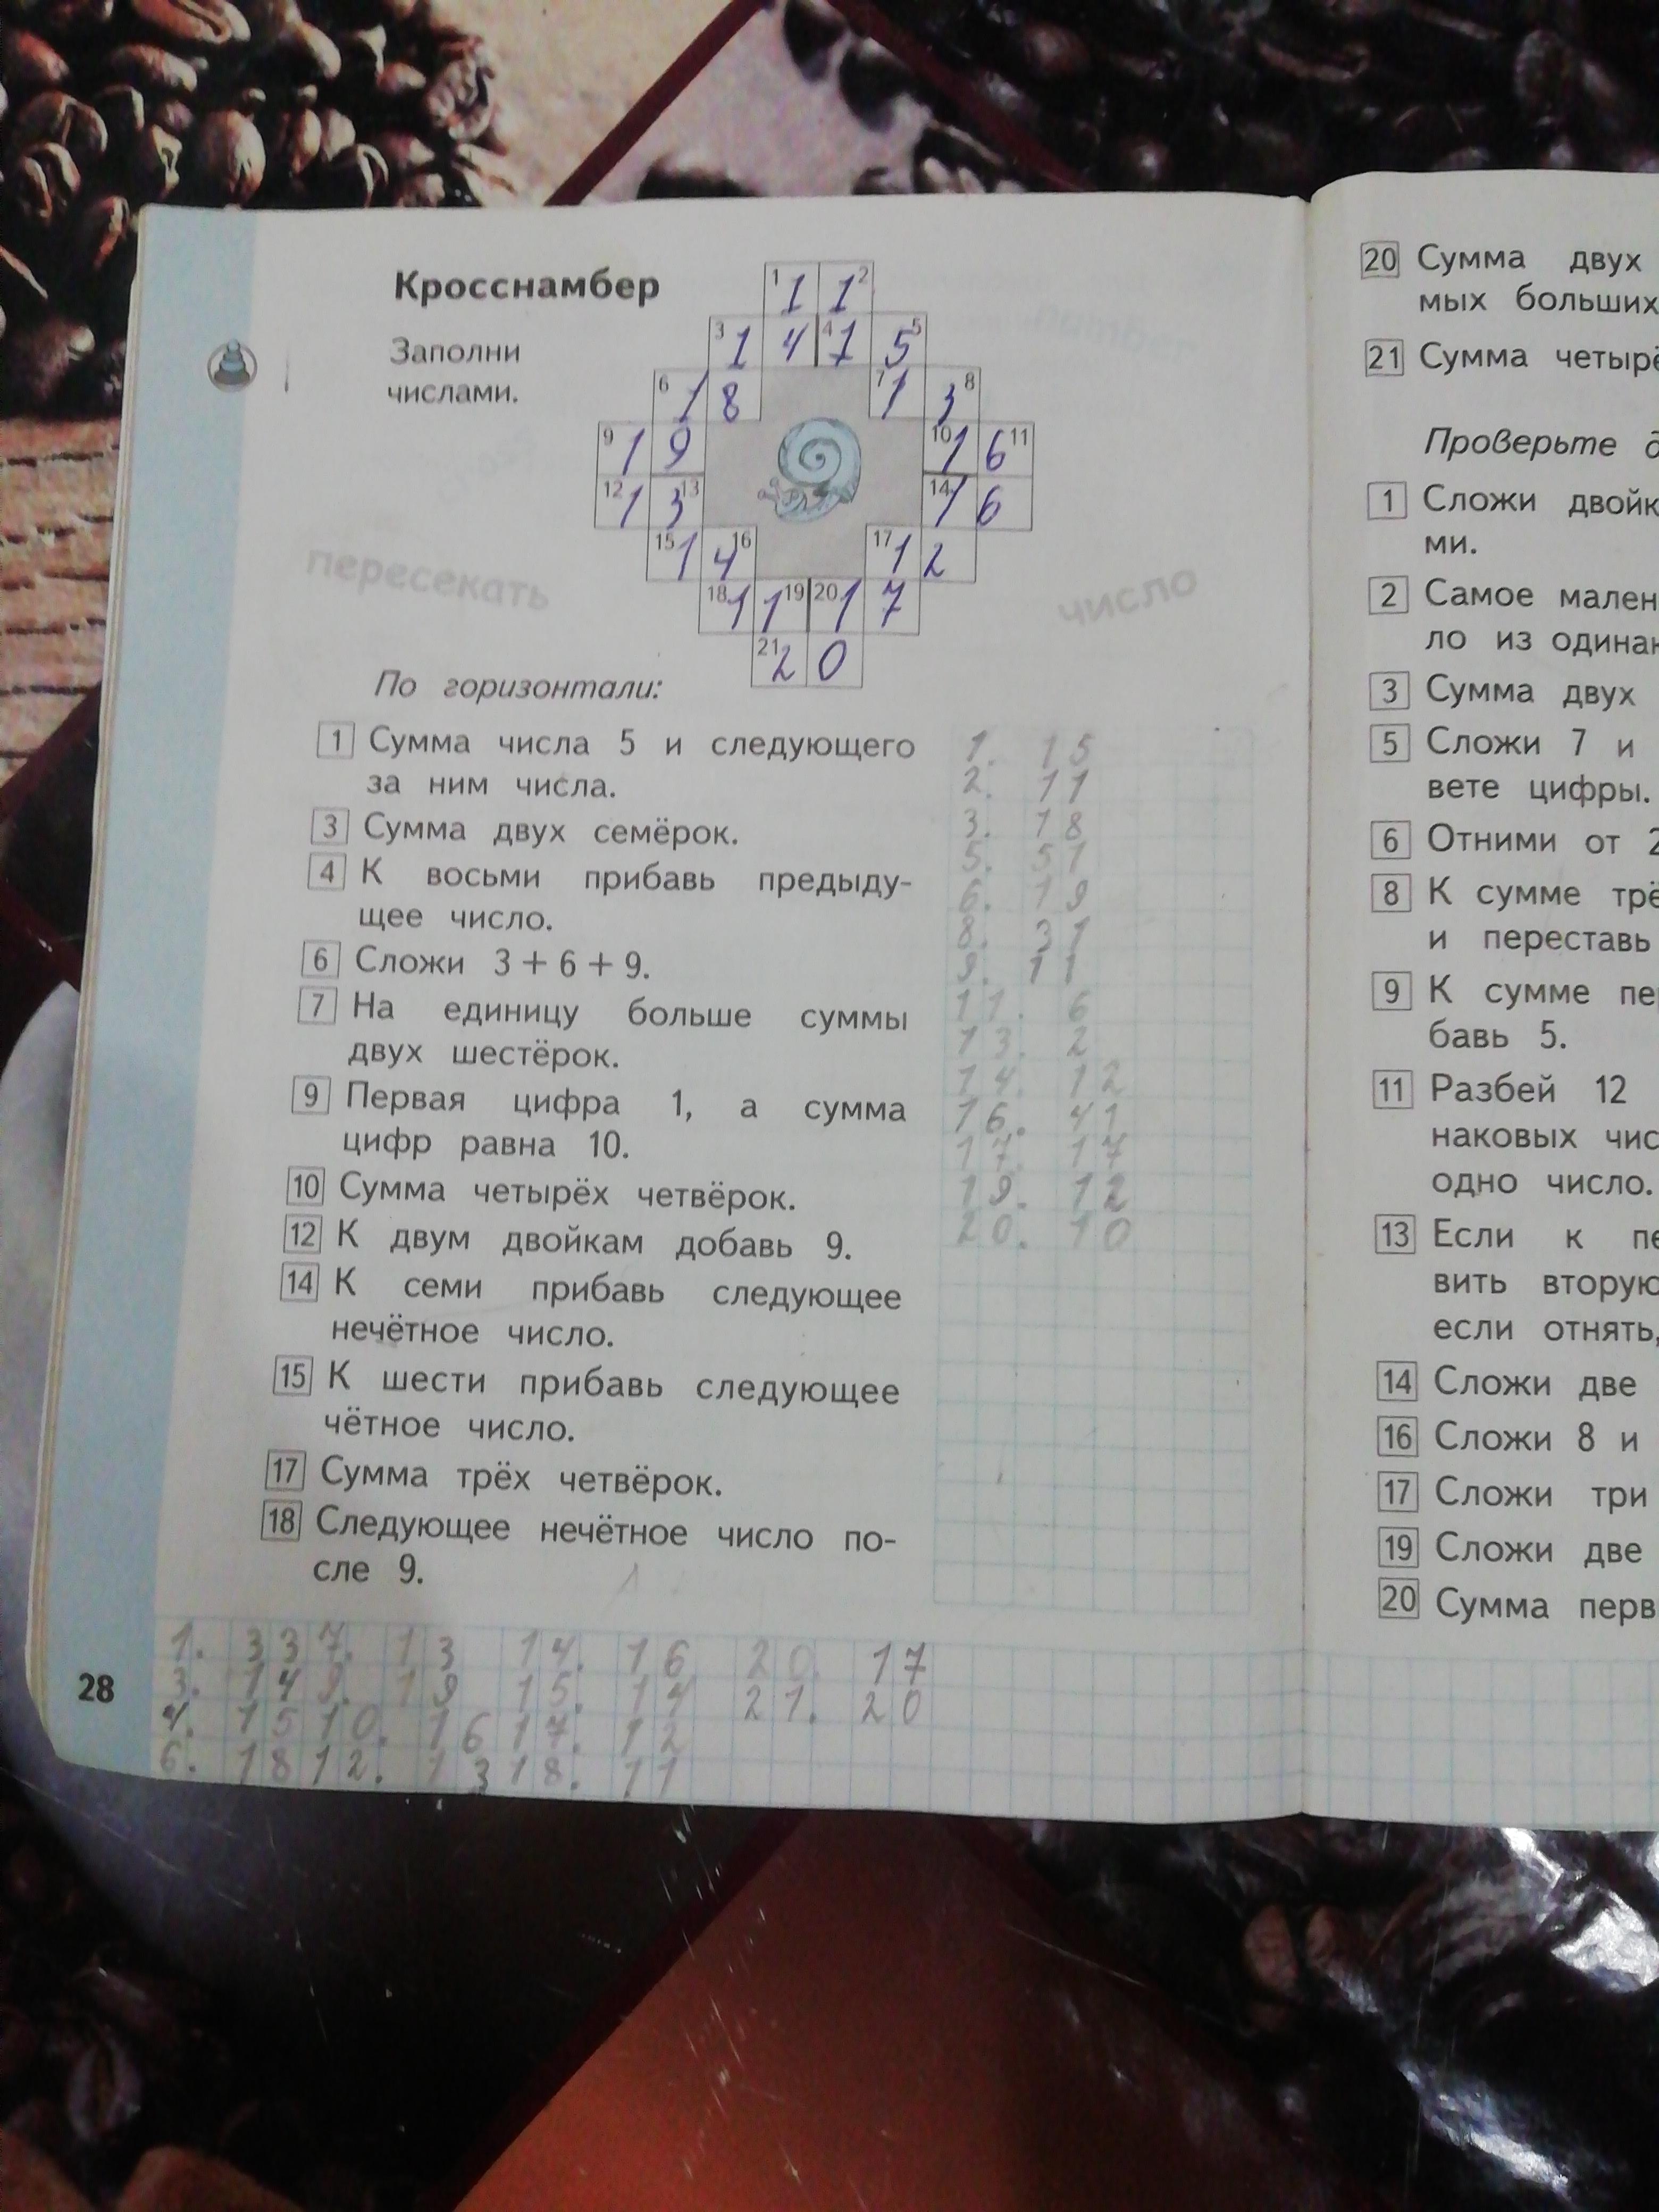 Кросснамбер
Заполни
числами.
1 1 1 2
3 1 4 4 1 5 5
6 1 8 7 1 3 8
9 1 9 10 1 6 11
12 1 3 13 14 1 6
15 1 4 16 17 1 2
18 1 1 19 20 1 7
21 2 0
пересекать
число
По горизонтали:
1 Сумма числа 5 и следующего
за ним числа.
3 Сумма двух семёрок.
4 К восьми прибавь предыду-
щее число.
6 Сложи 3 + 6 + 9.
7 На единицу больше суммы
двух шестёрок.
9 Первая цифра 1, а сумма
цифр равна 10.
10 Сумма четырёх четвёрок.
12 К двум двойкам добавь 9.
14 К семи прибавь следующее
нечётное число.
15 К шести прибавь следующее
чётное число.
17 Сумма трёх четвёрок.
18 Следующее нечётное число по-
сле 9.
1. 15
2. 11
3. 18
5. 51
6. 19
8. 31
9. 11
11. 6
13. 2
14. 12
16. 41
17. 17
19. 12
20. 10
1. 33 7. 13 14. 16 20. 17
3. 14 9. 19 15. 14 21. 20
4. 15 10. 16 17. 12
6. 18 12. 13 18. 11
28
20 Сумма двух
мых больших
21 Сумма
Проверьте
1 Сложи
ми.
2 Самое
ло из
3 Сумма двух
5 Сложи 7 и
вете цифры.
6 Отними от
8 К сумме
и переставь
9 К сумме
бавь 5.
11 Разбей 12
наковых
одно число.
13 Если к
вить вторую
если отнять,
14 Сложи две
16 Сложи 8 и
17 Сложи три
19 Сложи две
20 Сумма